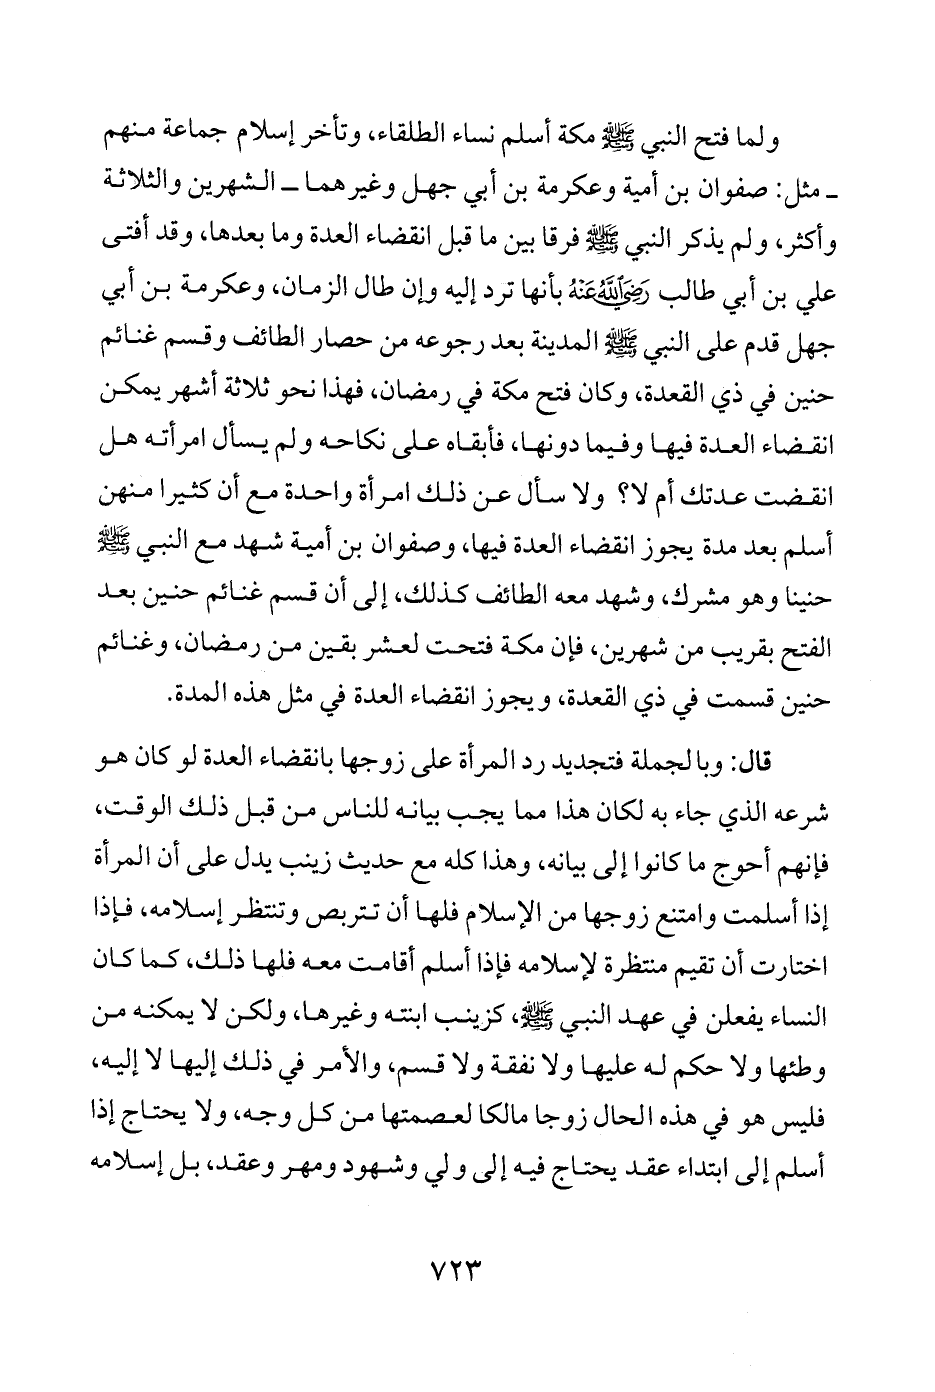 ولما فتح النبي ﷺ مكة أسلم نساء الطلقاء، وتأخر إسلام جماعة منهم
ـ مثل: صفوان بن أمية وعكرمة بن أبي جهل وغيرهما ـ الشهرين والثلاثة
وأكثر، ولم يذكر النبي ﷺ فرقا بين ما قبل انقضاء العدة وما بعدها، وقد أفتى
علي بن أبي طالب رَضِيَ اللَّهُ عَنْهُ بأنها ترد إليه وإن طال الزمان، وعكرمة بن أبي
جهل قدم على النبي ﷺ المدينة بعد رجوعه من حصار الطائف وقسم غنائم
حنين في ذي القعدة، وكان فتح مكة في رمضان، فهذا نحو ثلاثة أشهر يمكن
انقضاء العدة فيها وفيما دونها، فأبقاه على نكاحه ولم يسأل امرأته هل
انقضت عدتك أم لا؟ ولا سأل عن ذلك امرأة واحدة مع أن كثيرا منهن
أسلم بعد مدة يجوز انقضاء العدة فيها، وصفوان بن أمية شهد مع النبي ﷺ
حنينا وهو مشرك، وشهد معه الطائف كذلك، إلى أن قسم غنائم حنين بعد
الفتح بقريب من شهرين، فإن مكة فتحت لعشر بقين من رمضان، وغنائم
حنين قسمت في ذي القعدة، ويجوز انقضاء العدة في مثل هذه المدة.
قال: وبالجملة فتجديد رد المرأة على زوجها بانقضاء العدة لو كان هو
شرعه الذي جاء به لكان هذا مما يجب بيانه للناس من قبل ذلك الوقت،
فإنهم أحوج ما كانوا إلى بيانه، وهذا كله مع حديث زينب يدل على أن المرأة
إذا أسلمت وامتنع زوجها من الإسلام فلها أن تتربص وتنتظر إسلامه، فإذا
اختارت أن تقيم منتظرة لإسلامه فإذا أسلم أقامت معه فلها ذلك، كما كان
النساء يفعلن في عهد النبي ﷺ، كزينب ابنته وغيرها، ولكن لا يمكنه من
وطئها ولا حكم له عليها ولا نفقة ولا قسم، والأمر في ذلك إليها لا إليه،
فليس هو في هذه الحال زوجا مالكا لعصمتها من كل وجه، ولا يحتاج إذا
أسلم إلى ابتداء عقد يحتاج فيه إلى ولي وشهود ومهر وعقد، بل إسلامه
٧٢٣